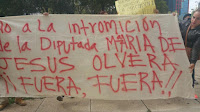 NO A LA INTROMICIÓN
de la Diputada MARIA DE
JESUS OLVERA
¡¡FUERA, FUERA!!